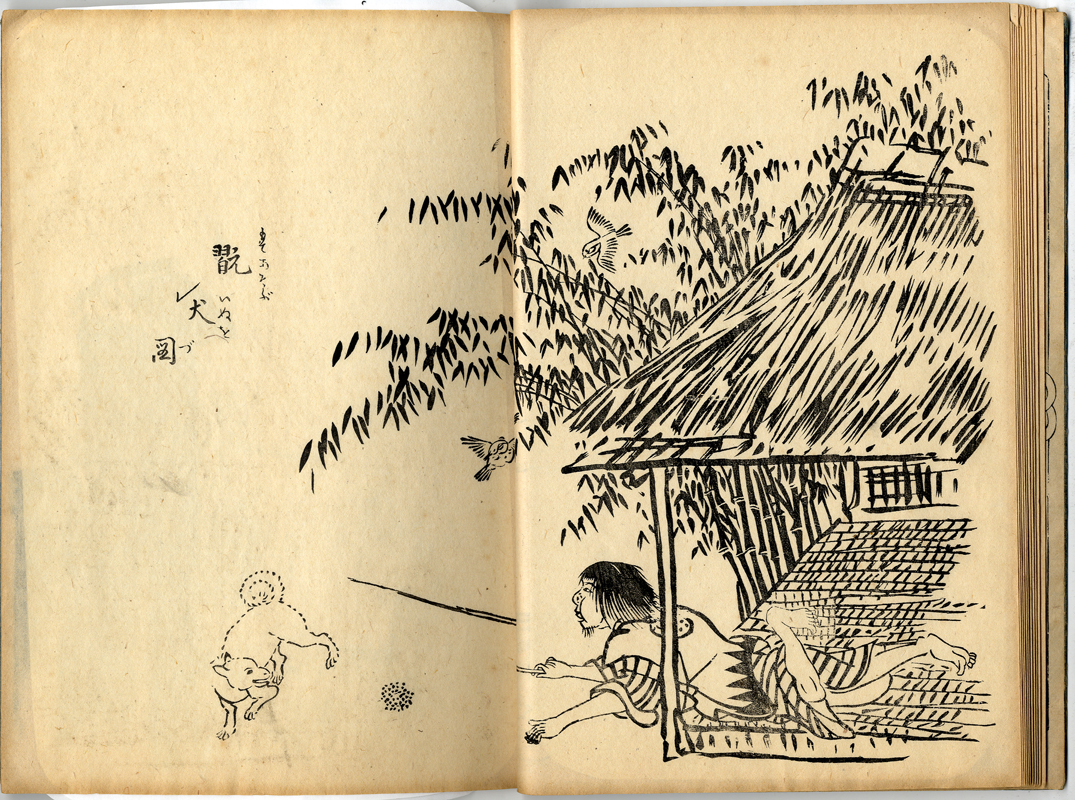 もてあそぶ
翫
いぬを
犬
づ
圖